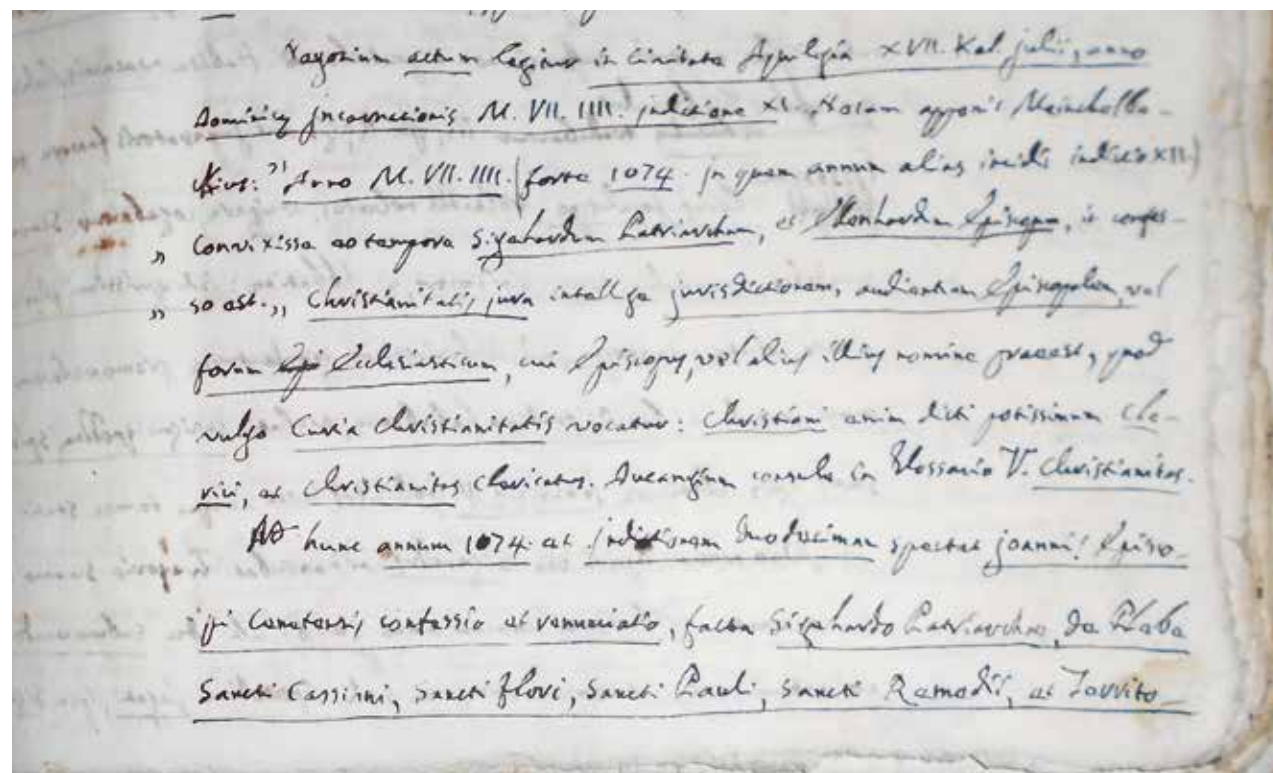 Negotium actum legitur in Civitate Aquilegia XVII. Kal. julii, anno
Dominicę Jncarnationis M. VII. IIII. jndictione XI. Notam apponit Meinchelbe-
Anno M. VII. IIII. (forte 1074. jn quem annum alias incidit indictio XII.)
„ convixisse eo tempore Sigehardum Patriarcham, et Episcopum, in confes-
„ so est.,, Christianitatis jura intellige jurisdictionem, audientiam Episcopalem, vel
forum Ecclesiasticum, cui Episcopus, vel alius illius nomine praeest, quod
vulgo Curia Christianitatis vocatur: Christiani enim dicti potissimum Cle-
rici, et Christianitas Clericatus. Ducangium consule in Glossario V. Christianitas.
Ad hunc annum 1074. et jndictionem duodecimam spectat joannis Episco-
pi Cenetensis confessio et renunciatio, facta Sigehardo Patriarchae, de Plebe
Sancti Cassiani, Sancti Flori, Sancti Pauli, Sancti Remedii, et Territo-